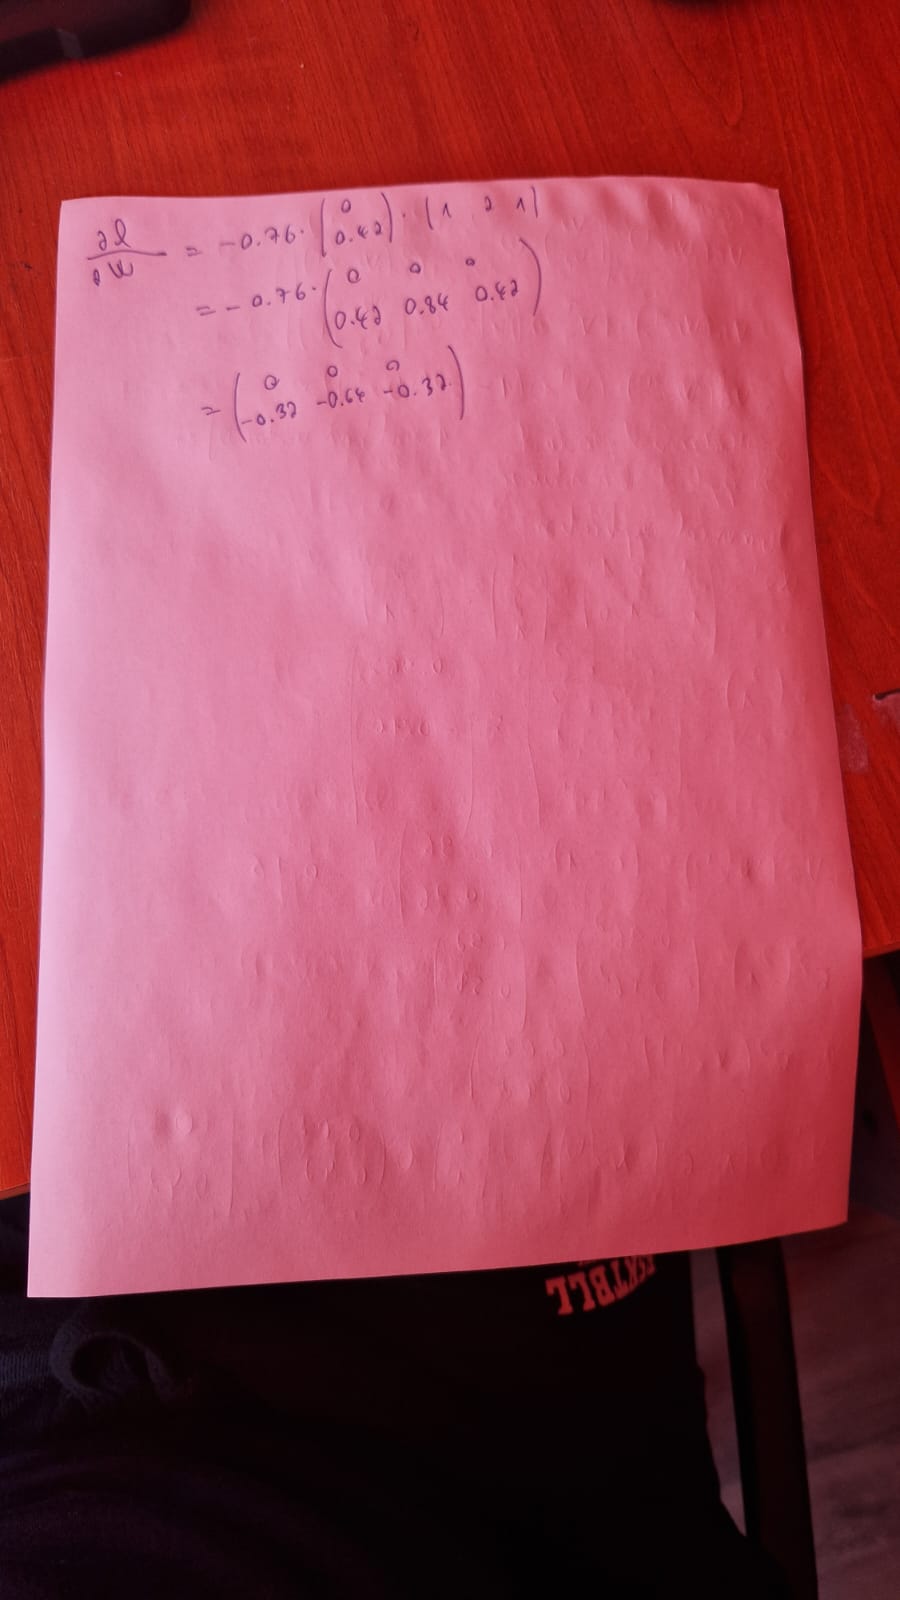 ∂l/∂W = -0.76 · (0 ; 0.42) · (1 2 1)
= -0.76 · (0 0 0 ; 0.42 0.84 0.42)
= (0 0 0 ; -0.32 -0.64 -0.32)